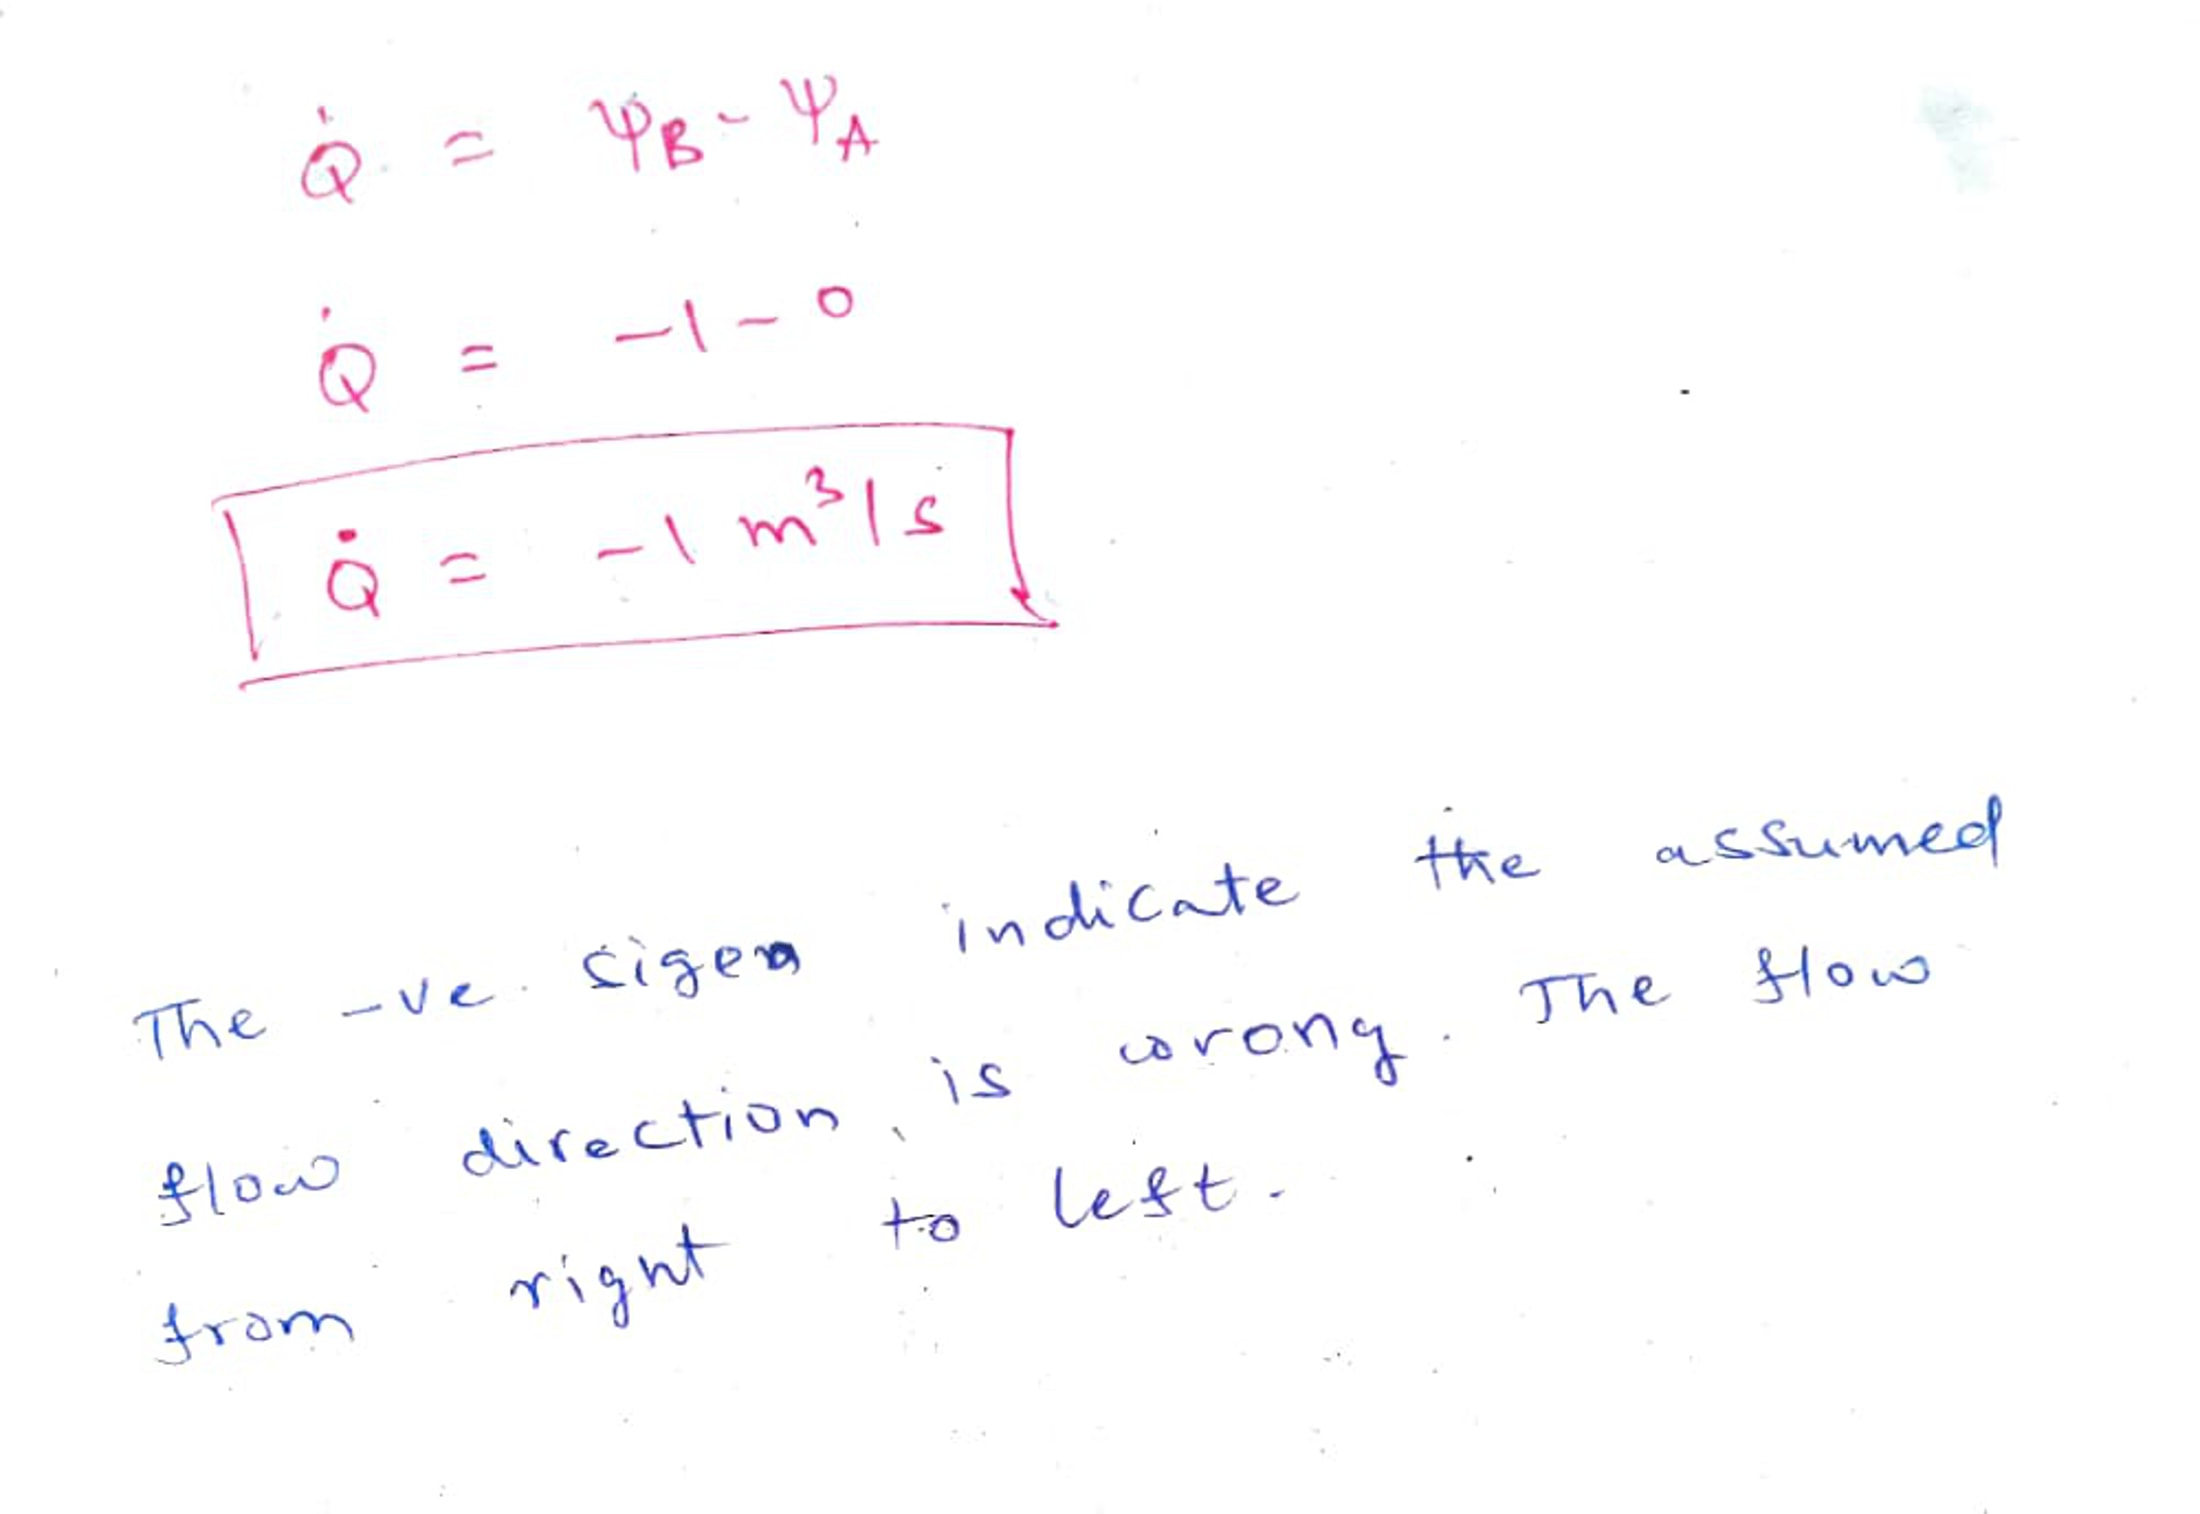 Q̇ = ψB - ψA
Q̇ = -1 - 0
Q̇ = -1 m³/s
The -ve sigen indicate the assumed
flow direction is wrong. The flow
from right to left.